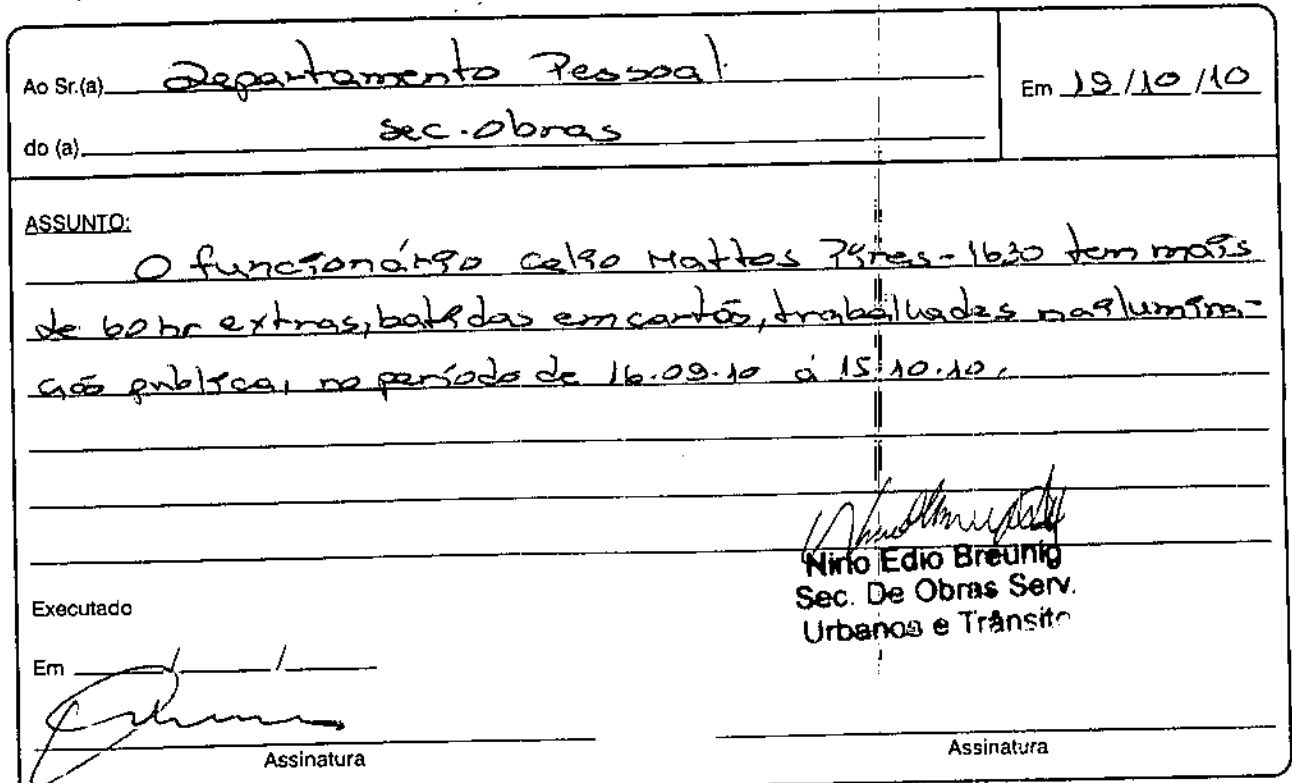 Ao Sr.(a) Departamento Pessoal.
Em 19/10/10
do (a) Sec. Obras
ASSUNTO:
O funcionário Celso Mattos Pires - 1630 tem mais
de 60 hr extras, batidas em cartão, trabalhadas na ilumina-
ção publica, no período de 16.09.10 á 15.10.10.
Nirio Edio Breunig
Sec. De Obras Serv.
Urbanos e Trânsito
Executado
Em / /
Assinatura
Assinatura